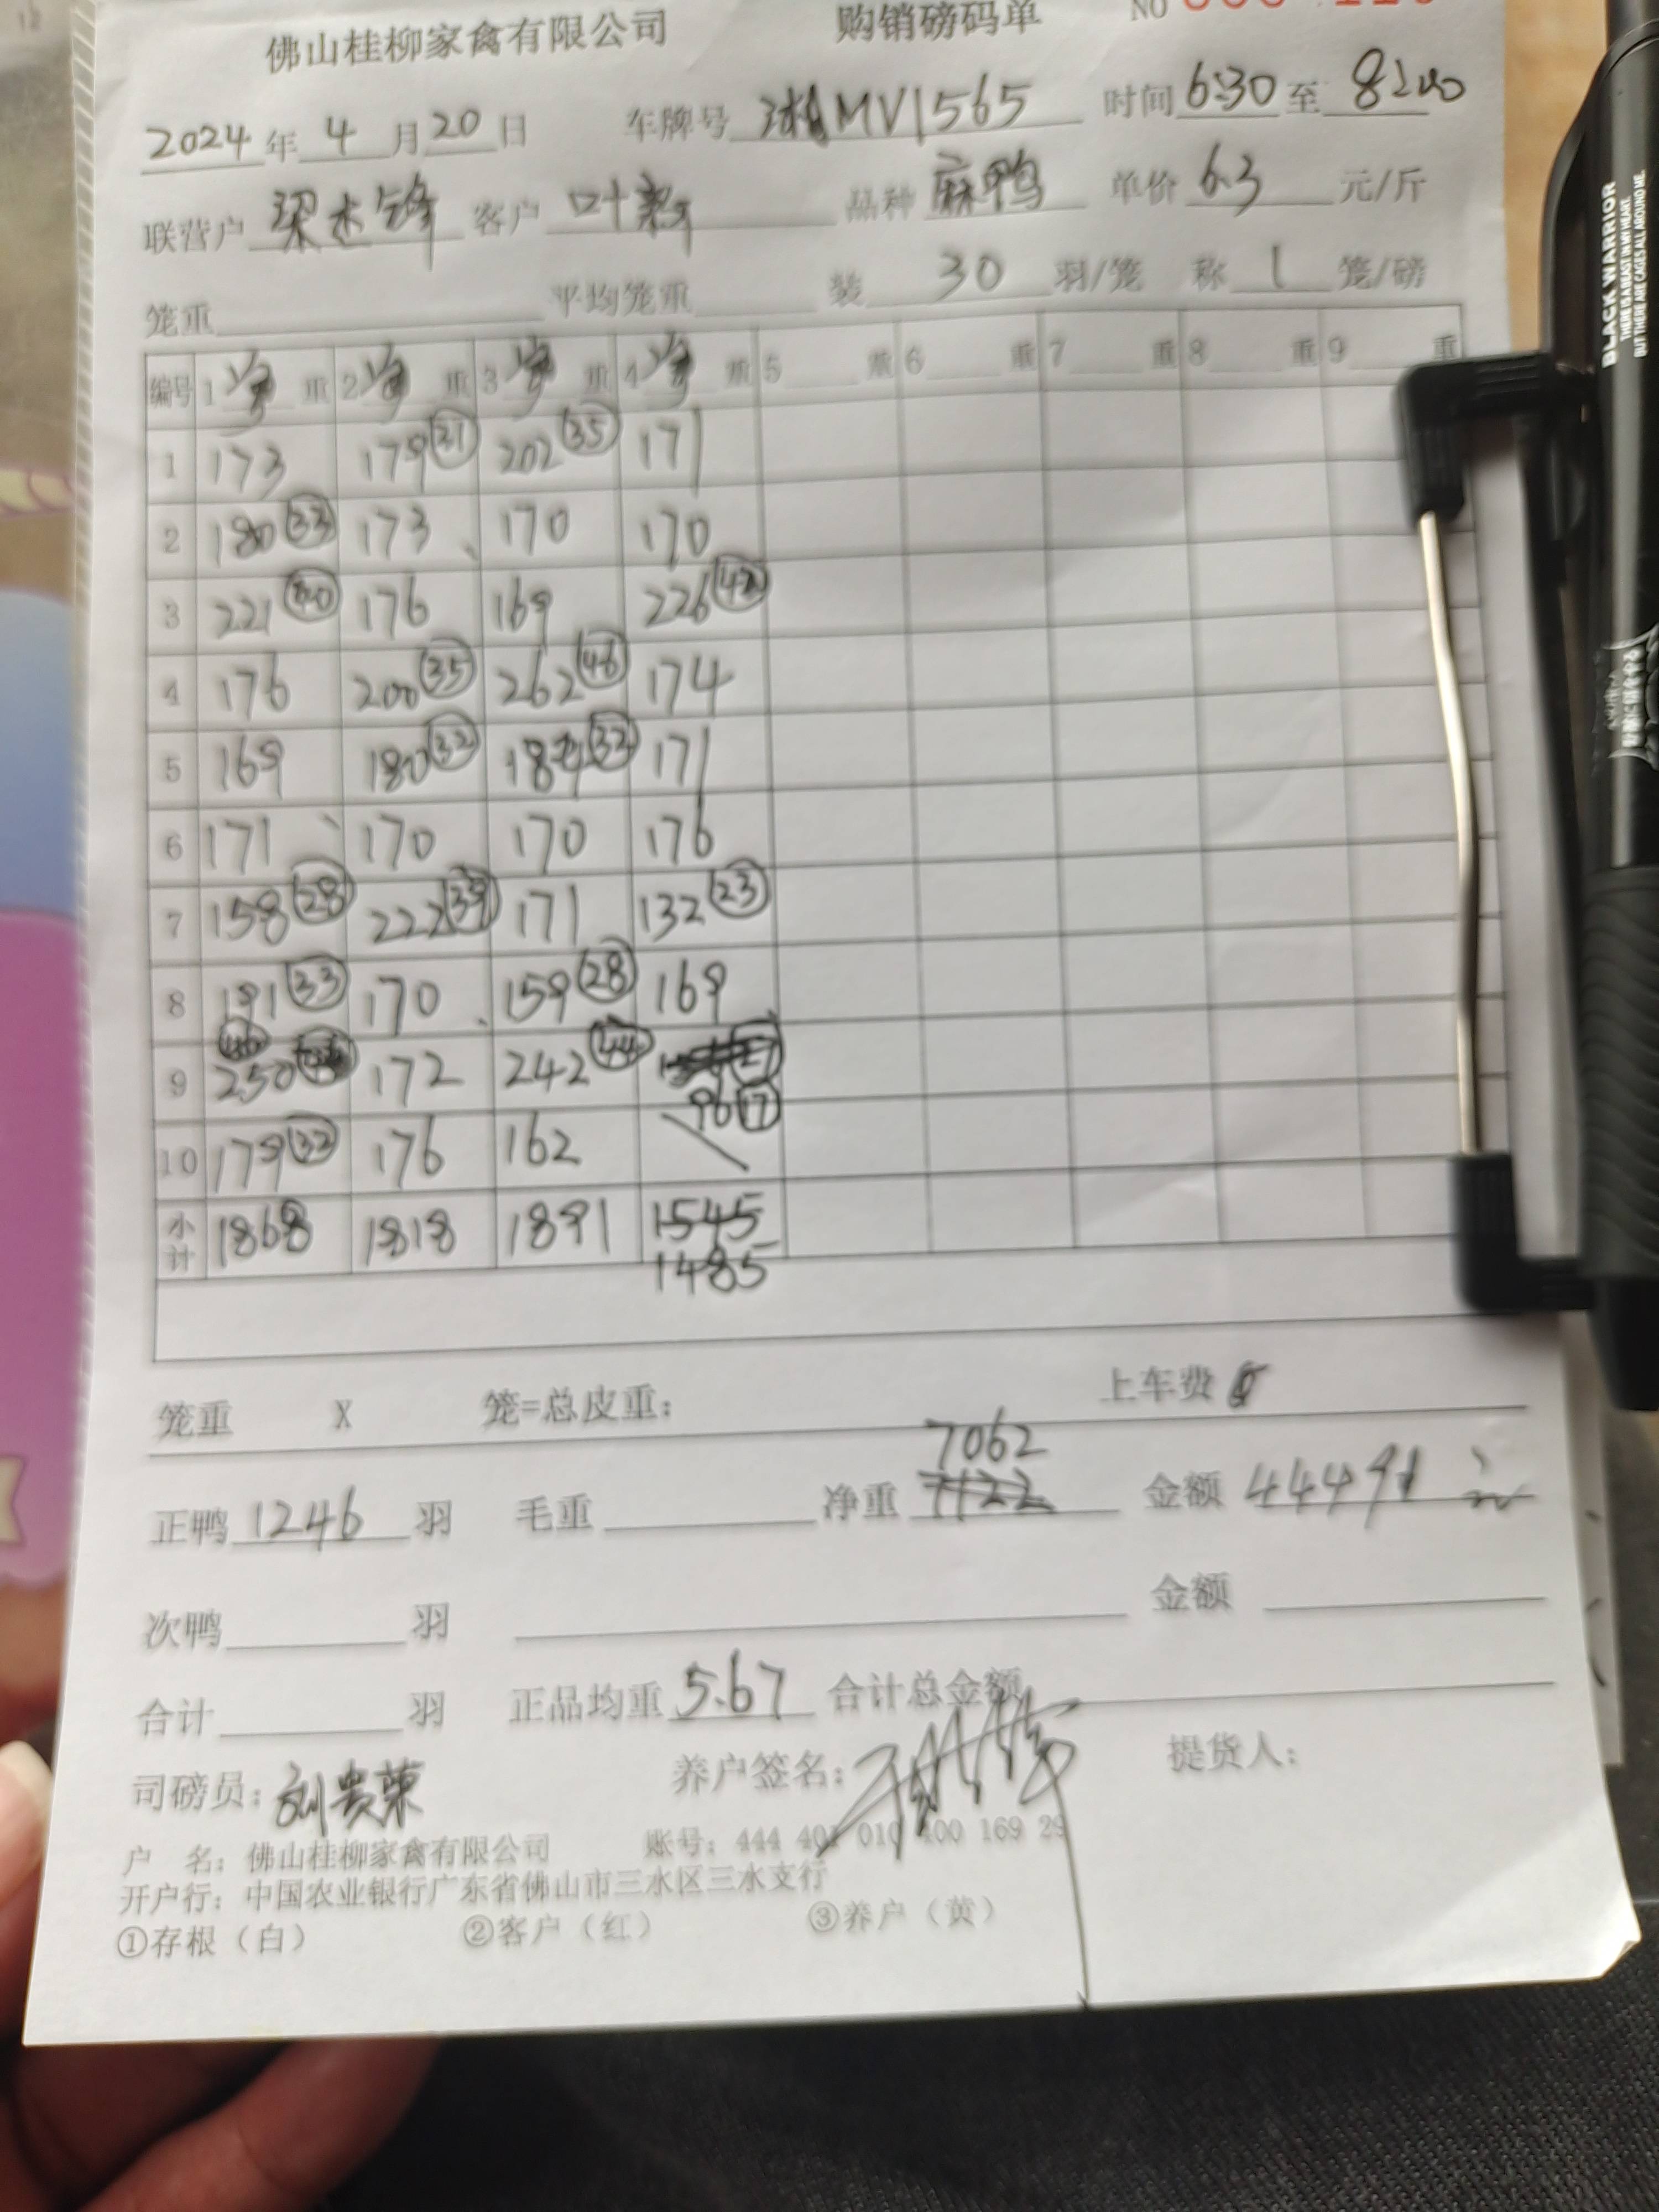 佛山桂柳家禽有限公司 购销磅码单 NO
2024 年 4 月 20 日 车牌号 湘MV1565 时间 6:30 至 8:00
联营户 梁志锋 客户 叶新 品种 麻鸭 单价 6.3 元/斤
笼重 平均笼重 装 30 羽/笼 称 1 笼/磅
编号 1 重 2 重 3 重 4 重 5 重 6 重 7 重 8 重 9 重
1 173 179 31 202 35 171
2 180 33 173 170 170
3 221 40 176 169 226 42
4 176 200 35 262 46 174
5 169 180 32 184 32 171
6 171 170 170 176
7 158 28 222 39 171 132 23
8 191 33 170 159 28 169
9 250 46 172 242 44 96 17
10 179 32 176 162
小计 1868 1818 1891 1545
1485
笼重 X 笼=总皮重: 上车费
7062
正鸭 1246 羽 毛重 净重 7122 金额 44491 元
次鸭 羽 金额
合计 羽 正品均重 5.67 合计总金额
司磅员: 刘贵荣 养户签名: 提货人:
户 名: 佛山桂柳家禽有限公司 账号: 444 401 010 400 169 29
开户行: 中国农业银行广东省佛山市三水区三水支行
①存根(白) ②客户(红) ③养户(黄)
BLACK WARRIOR
THERE IS A BEAST IN MY HEART,
BUT THERE ARE CAGES ALL AROUND ME.